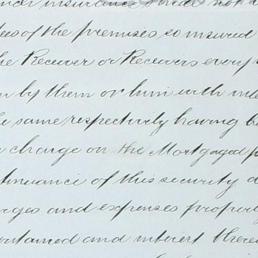 insurance
of the premises so insured
the Receiver or Receivers every
by them or him with
same respectively having
charge on the Mortgaged
of this security
and expenses properly
and interest